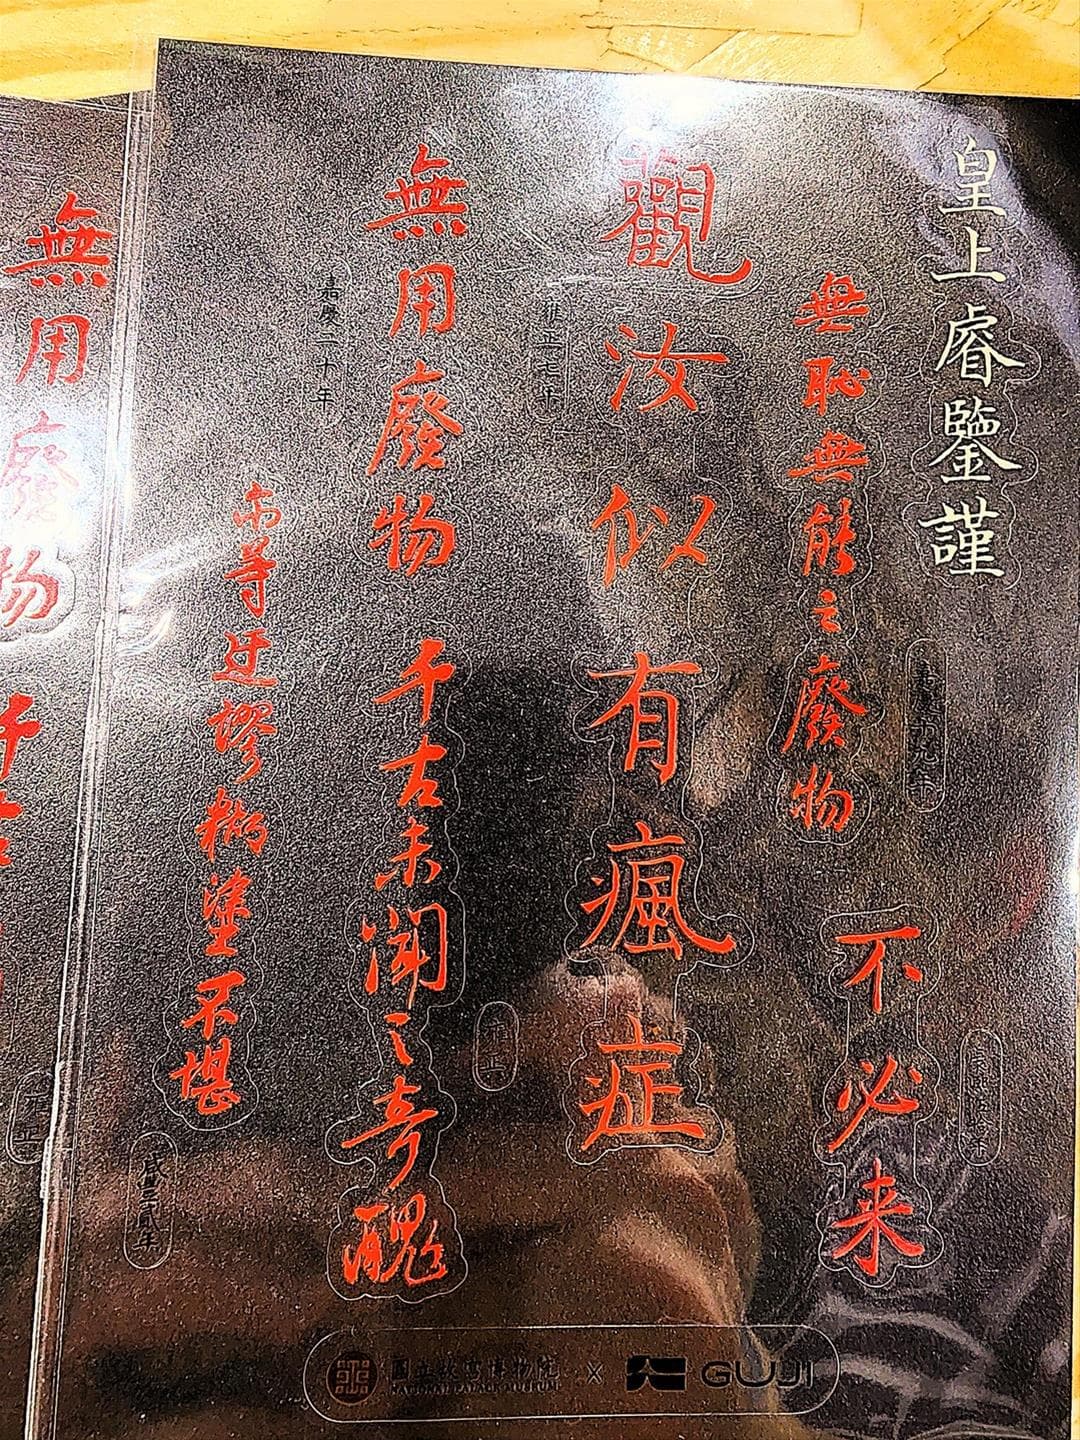 皇上睿鑒謹
無恥無能之廢物
不必來
觀汝似有瘋症
雍正七年
無用廢物
千古未聞之奇醜
雍正
嘉慶二十年
尔等迂謬糊塗不堪
咸豐貳年
國立故宮博物院
NATIONAL PALACE MUSEUM
×
GUJI
無用廢物